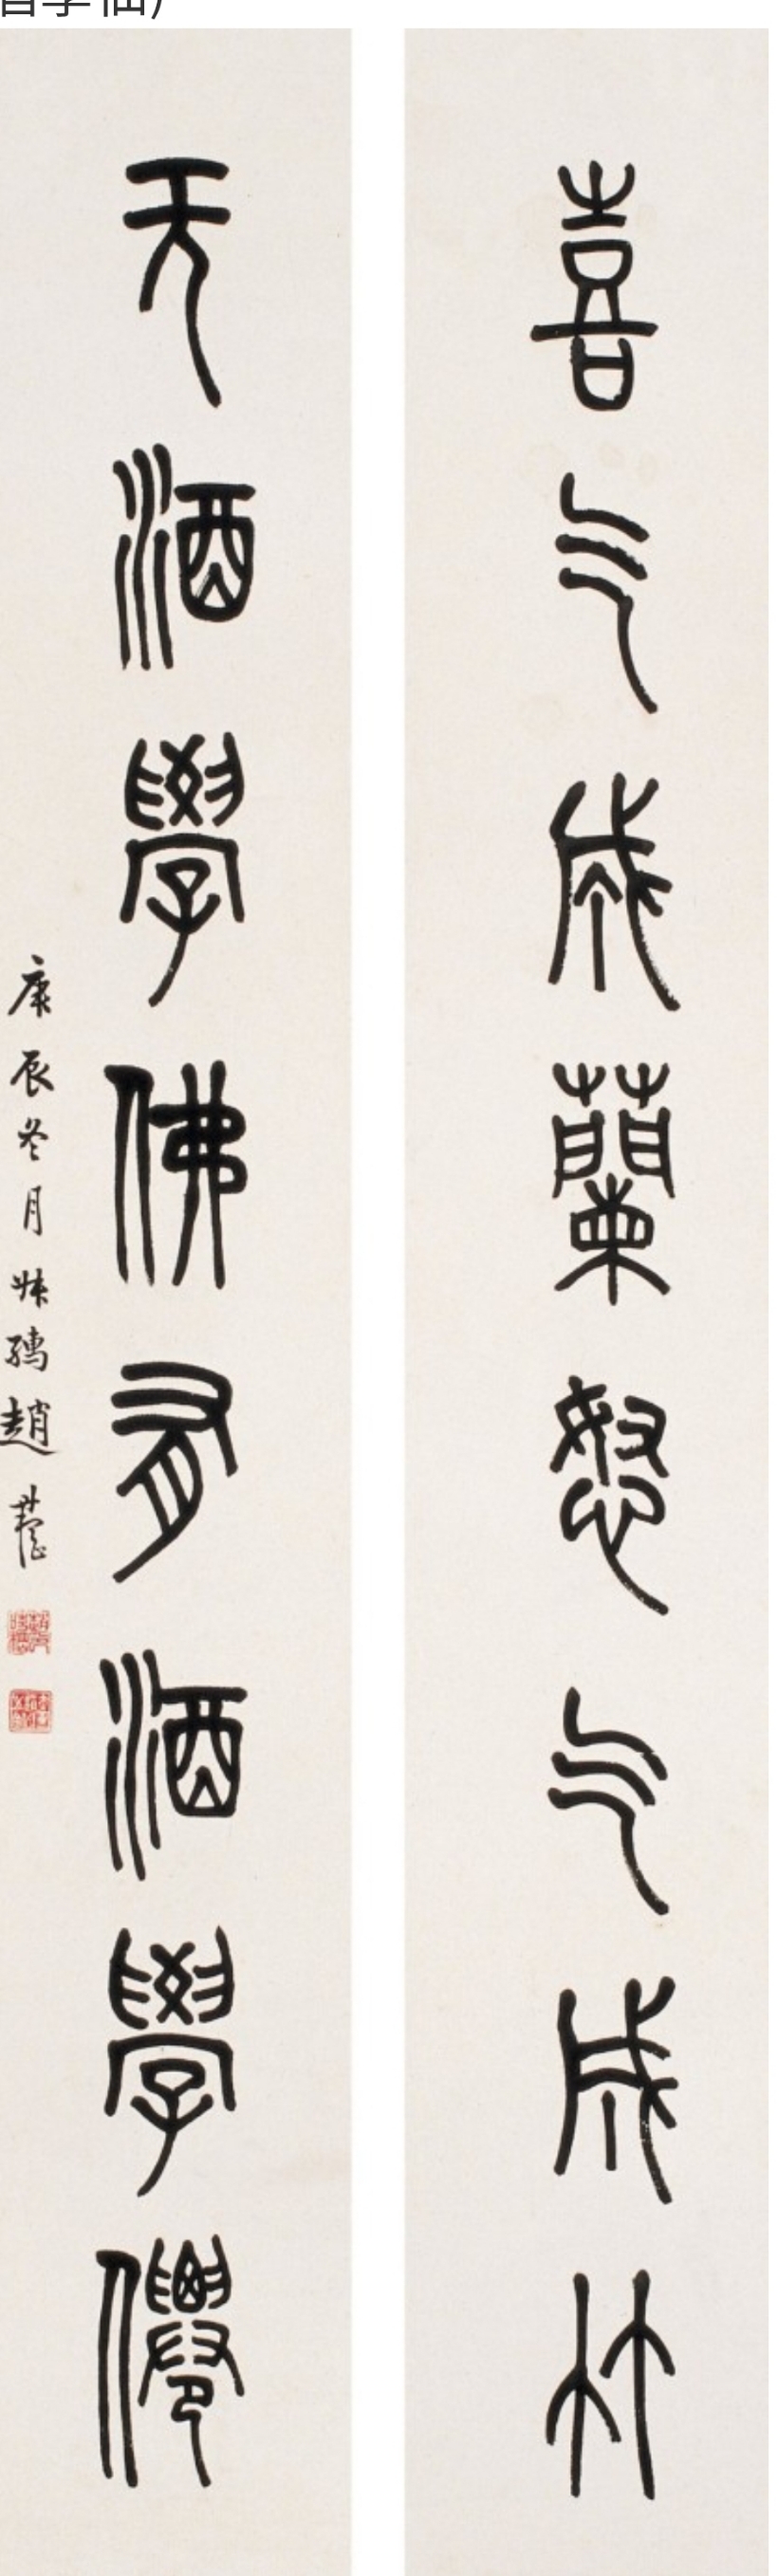 喜气成蘭怒气成竹
无酒學佛有酒學僊
庚辰冬月叔孺趙時棡